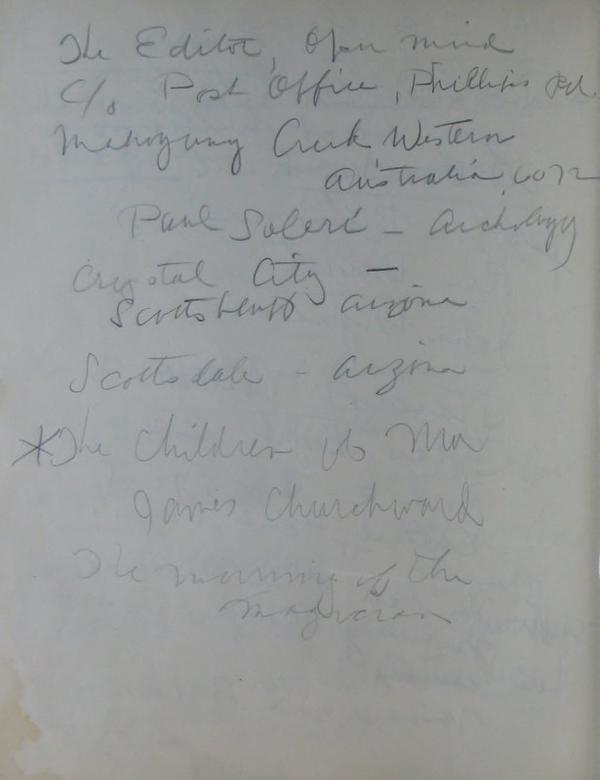 The Editor, Open mind
c/o Post Office, Phillips Rd.
Mahogany Creek Western
Australia, 6072
Paul Soleri - Archology
Crystal City -
Scottsbluff Arizona
Scottsdale - Arizona
* The Children of Mu
James Churchward
The morning of the
magician